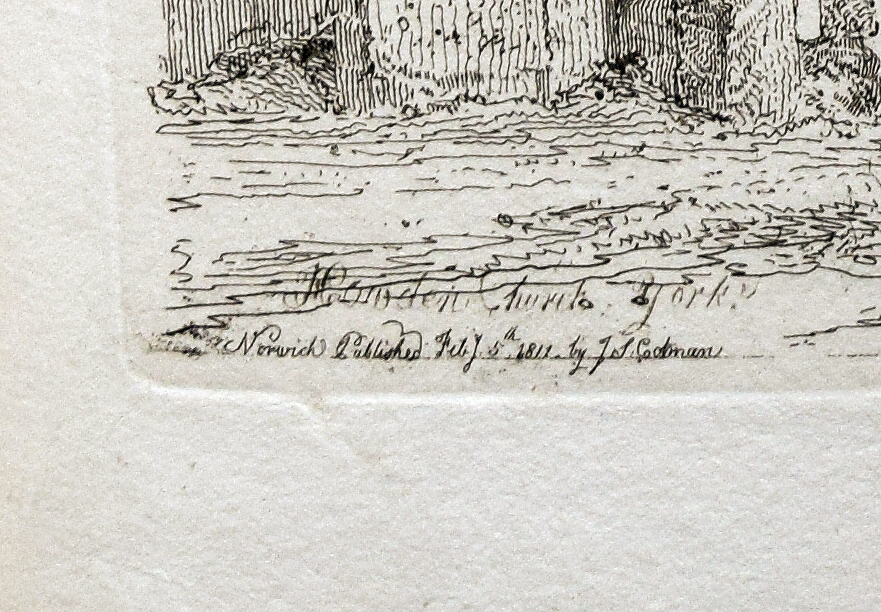 Howden Church Yorks
Norwich Published Feby 5th 1811 by J. S. Cotman